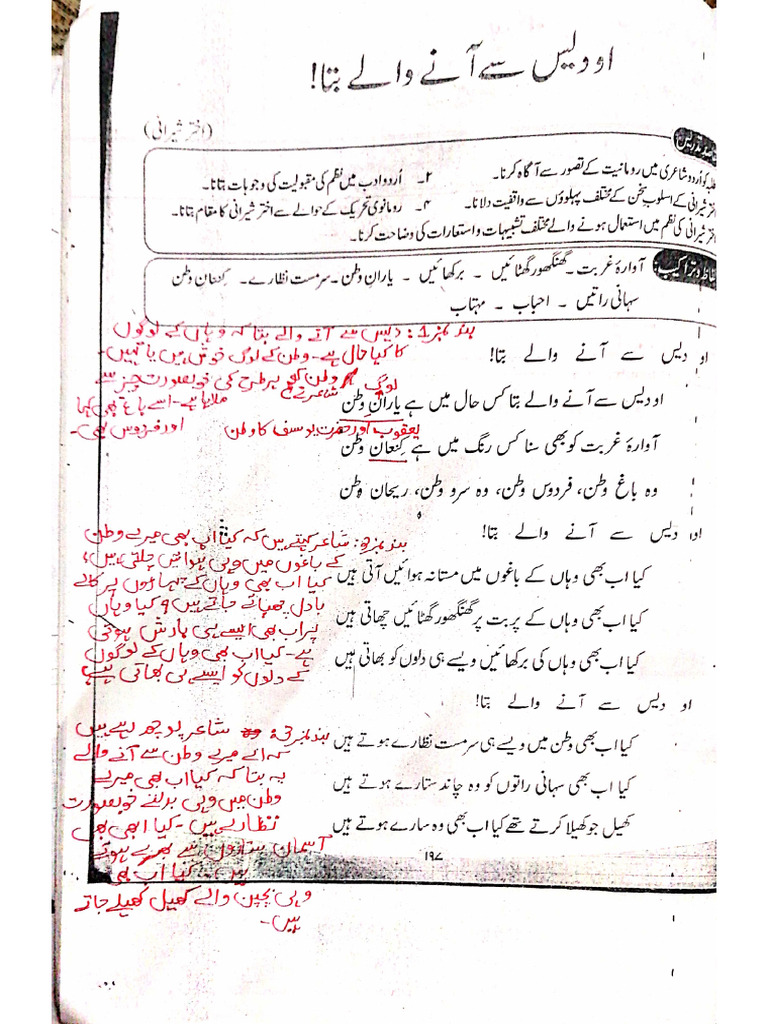 او دیس سے آنے والے بتا!
(اختر شیرانی)
اُردو شاعری میں رومانیت کے تصور سے آگاہ کرنا۔ ۲۔ اُردو ادب میں نظم کی مقبولیت کی وجوہات بتانا۔
اختر شیرانی کے اسلوبِ سخن کے مختلف پہلوؤں سے واقفیت دلانا۔ ۴۔ رومانوی تحریک کے حوالے سے اختر شیرانی کا مقام بتانا۔
اختر شیرانی کی نظم میں استعمال ہونے والے مختلف تشبیہات و استعارات کی وضاحت کرنا۔
آوارۂ غربت۔ گھنگھور گھٹائیں ۔ برکھائیں ۔ یارانِ وطن۔ سرمست نظارے۔ کنعانِ وطن
سہانی راتیں ۔ احباب ۔ مہتاب
بند نمبر 1: دیس سے آنے والے بتا کہ وہاں کے لوگوں
کا کیا حال ہے۔ وطن کے لوگ خوش ہیں یا نہیں۔
او دیس سے آنے والے بتا!
لوگ
شاعر نے وطن کو ہر طرح کی خوبصورت چیز سے
ملایا ہے۔ اسے باغ بھی کہا
اور فردوس بھی۔
او دیس سے آنے والے بتا کس حال میں ہے یارانِ وطن
یعقوب اور حضرت یوسف کا وطن
آوارۂ غربت کو بھی سنا کس رنگ میں ہے کنعانِ وطن
وہ باغِ وطن، فردوسِ وطن، وہ سروِ وطن، ریحانِ وطن
او دیس سے آنے والے بتا!
بند نمبر 2: شاعر کہتے ہیں کہ کیا اب بھی میرے وطن
کے باغوں میں وہی ہوائیں چلتی ہیں؟
کیا اب بھی وہاں کے پہاڑوں پر کالے
بادل چھائے جاتے ہیں؟ کیا وہاں
پر اب بھی ایسے ہی بارش ہوتی
ہے۔ کیا اب بھی وہاں کے لوگوں
کے دلوں کو ایسے ہی بھاتی ہے
کیا اب بھی وہاں کے باغوں میں مستانہ ہوائیں آتی ہیں
کیا اب بھی وہاں کے پربت پر گھنگھور گھٹائیں چھاتی ہیں
کیا اب بھی وہاں کی برکھائیں ویسے ہی دلوں کو بھاتی ہیں
او دیس سے آنے والے بتا!
بند نمبر 3: شاعر پوچھ رہے ہیں
کہ اے میرے وطن سے آنے والے
یہ بتا کہ کیا اب بھی میرے
وطن میں وہی خوبصورت
نظارے ہیں۔ کیا ابھی بھی
آسمان ستاروں سے بھرے ہوتے
ہیں۔ کیا اب بھی
وہی بچپن والے کھیل کھیلے جاتے
ہیں۔
کیا اب بھی وطن میں ویسے ہی سرمست نظارے ہوتے ہیں
کیا اب بھی سہانی راتوں کو وہ چاند ستارے ہوتے ہیں
کھیل جو کھیلا کرتے تھے کیا اب بھی وہ سارے ہوتے ہیں
۱۹۷